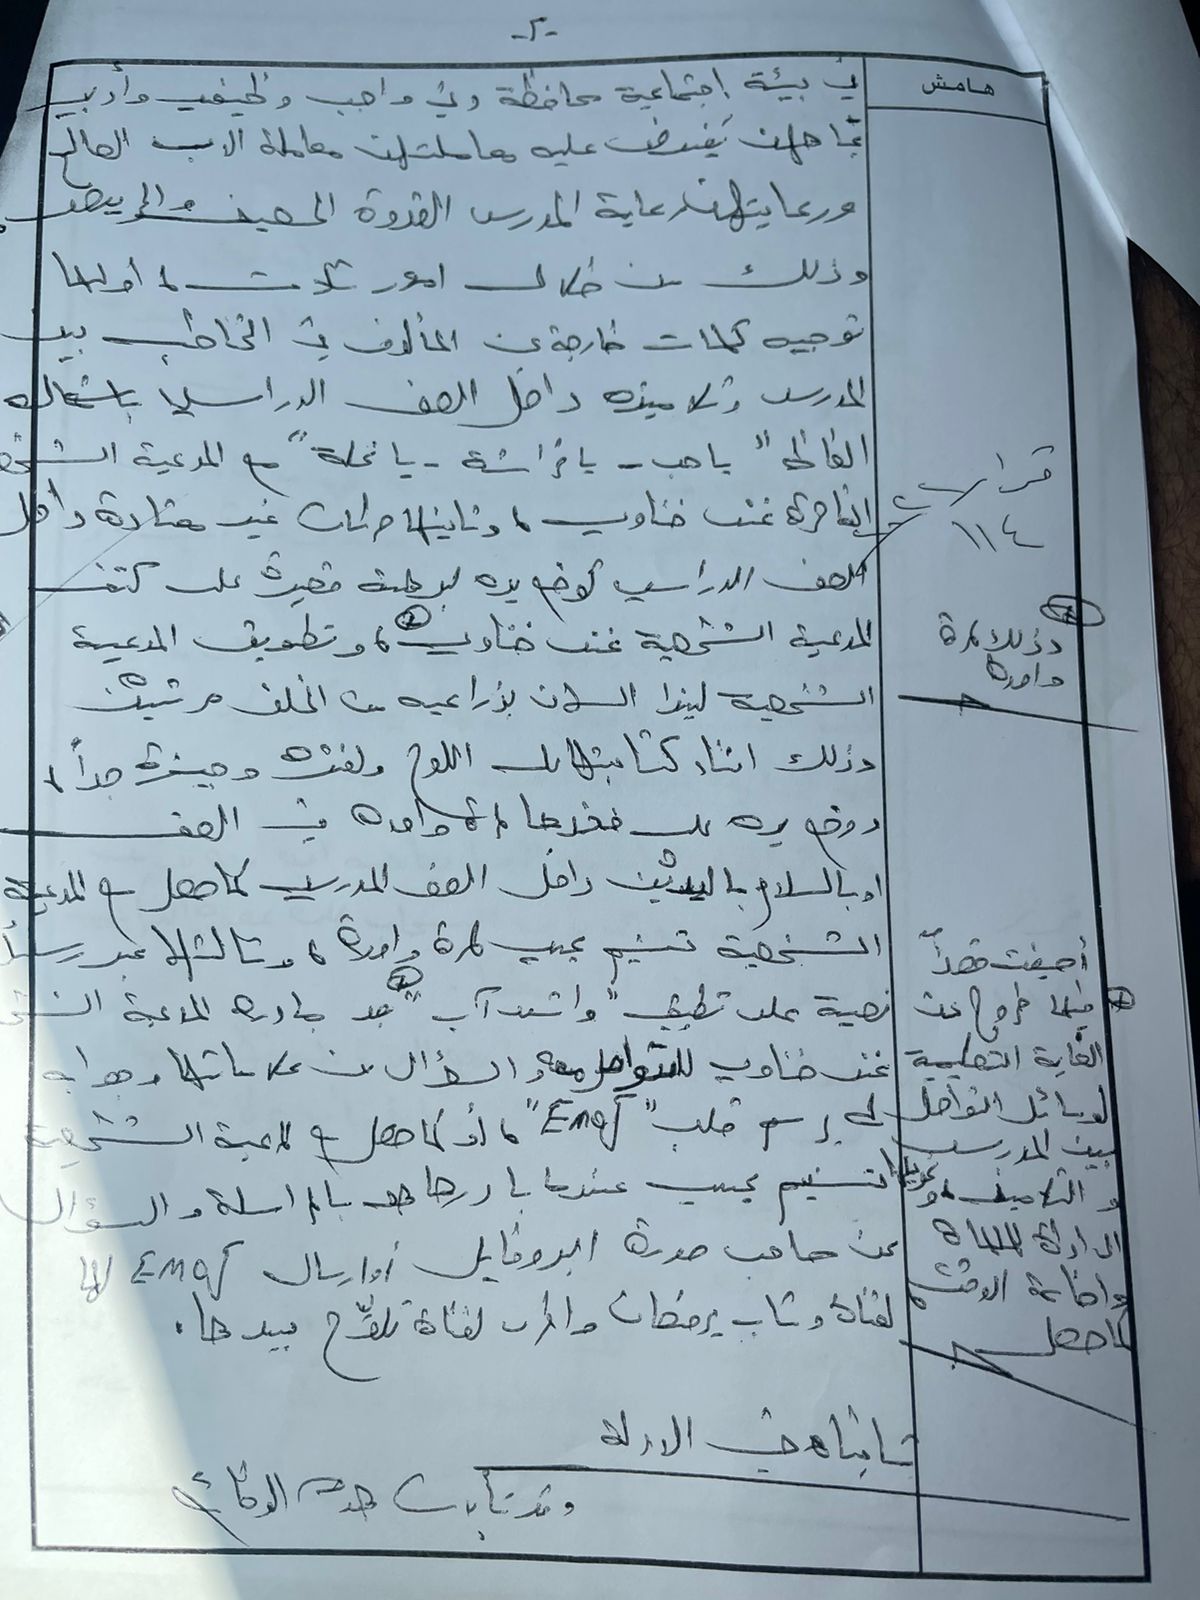 -٢-
هامش
في بيئة اجتماعية محافظة وفي واجب وظيفي وأدبي
تجاههن يُفترض عليه معاملتهن معاملة الاب الصالح
ورعايتهن رعاية المدرس القدوة
وذلك من خلال امور ثلاث، أولها
توجيه كلمات خارجة عن المألوف في التخاطب بين
المدرس وتلاميذه داخل الصف الدراسي باستعماله
الفاظ "يا حب - يا فراشة - يا نحلة" مع المدعية الشخصية
القاصرة غنى ضناوي، وثانيها حركات غير معتادة داخل
الصف الدراسي كوضع يده لبرهة قصيرة على كتف
المدعية الشخصية غنى ضناوي، وتطويق المدعية
الشخصية ليندا السلان بذراعيه من الخلف مرتين
وذلك اثناء كتابتها على اللوح ولفترة وجيزة جداً،
ووضع يده على فخذها لمرة واحدة في الصف
او بالسلام باليدين داخل الصف المدرسي كما حصل مع المدعية
الشخصية تسنيم نجيب لمرة واحدة، وثالثها عبر رسائل
نصية على تطبيق "واتسآب" بعد مبادرة المدعية الشخصية
غنى ضناوي للتواصل معه والسؤال عن علاماتها وجوابه
لها برسم قلب "Emoj"، أو كما حصل مع المدعية الشخصية
تسنيم نجيب عندما بادرها هو بالمراسلة والسؤال
عن صاحب صورة البروفايل أو ارسال Emoj لها
لفتاة وشاب يرقصان واخرى لفتاة تلوّح بيدها.
ثانياً: في الادلة
وقد تأيدت هذه الوقائع
قرار
١١٤
وذلك لمرة
واحدة
أضيفت قصداً
فيها خروج عن
الغاية التعليمية
لوسائل التواصل
بين المدرس
والتلاميذ
الدارة
واضاعة الوقت
كما حصل